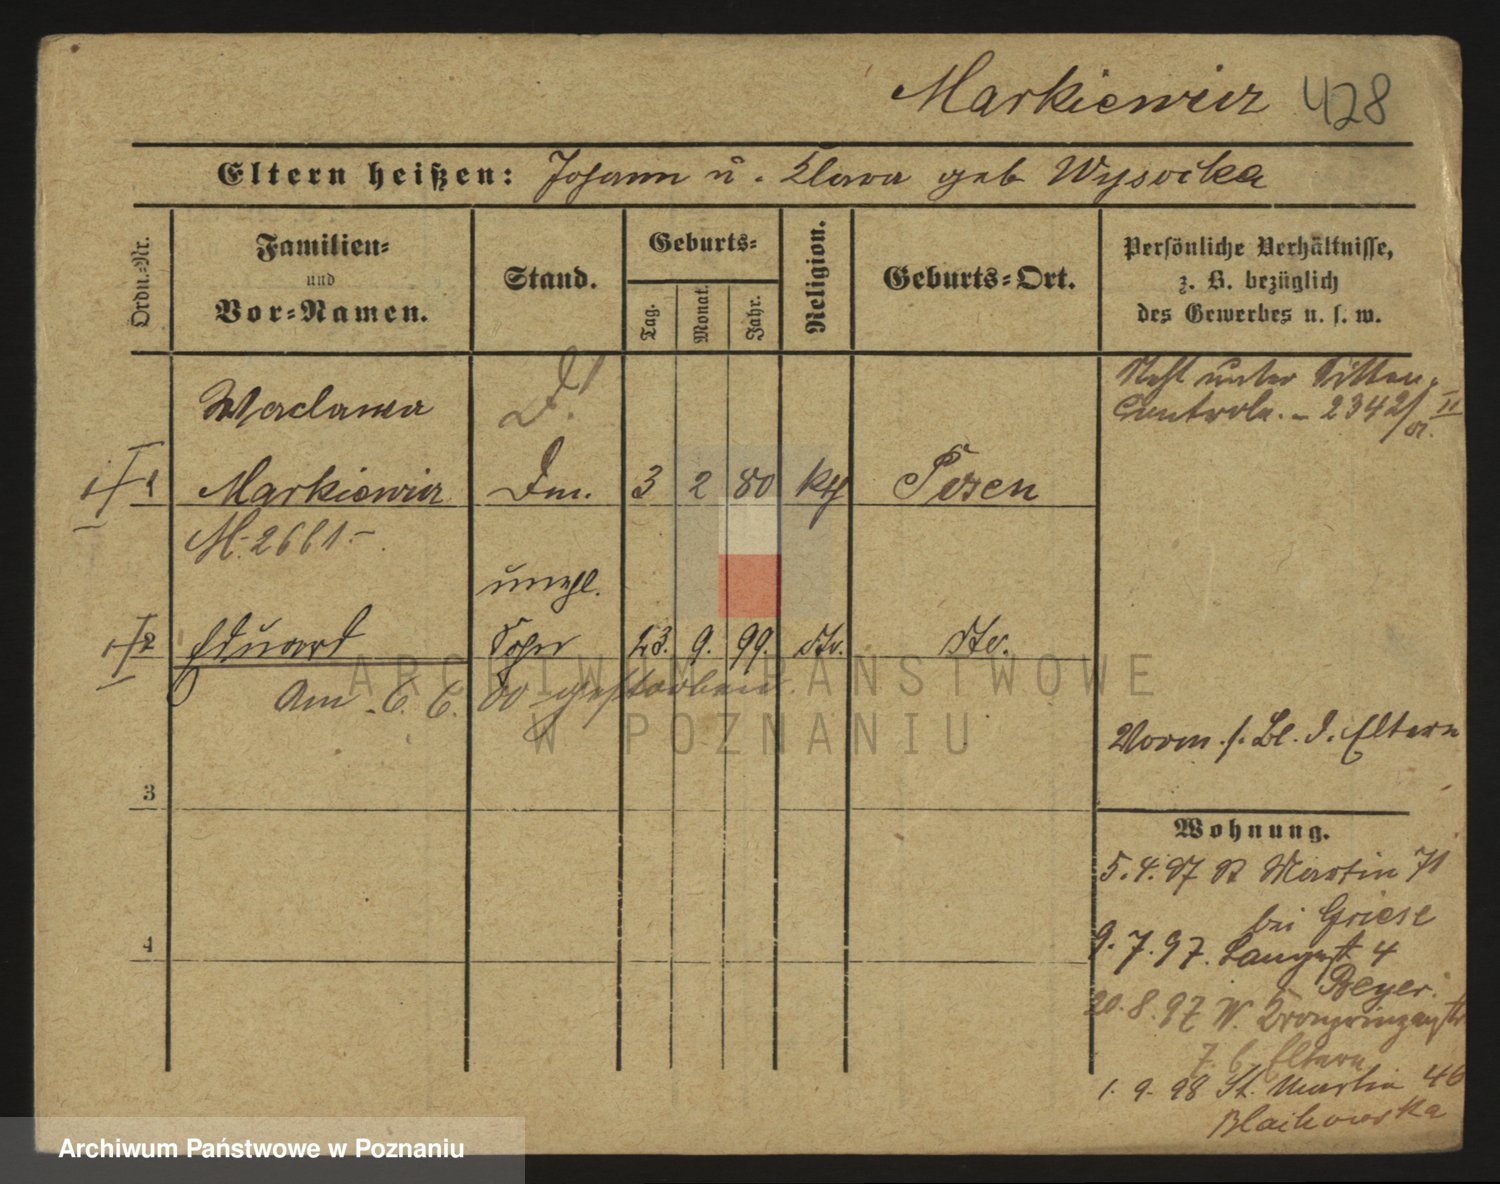 Markiewicz 428
Eltern heißen: Johann u. Clara geb Wysocka
Ordn.=Nr.
Familien=
und
Vor=Namen.
Stand.
Geburts=
Tag.
Monat.
Jahr.
Religion.
Geburts=Ort.
Persönliche Verhältnisse,
z. B. bezüglich
des Gewerbes u. s. w.
Steht unter Sitten-
Controle. - 2342/ II
Waclawa
1 Markiewicz 3 2 80 kth Posen
M. 2661.-
unehl.
2 Eduard Sohn 23. 9. 99. dto. dto.
Am 6. 6. 00 gestorben.
Vorm. s. Bl. d. Eltern
3
Wohnung.
5. 4. 97 St Martin 71
bei Griese
9. 7. 97. Langestr 4
Beyer.
20. 8. 97 W. Kronprinzenstr
7. b. Eltern
1. 9. 98 St. Martin 46
4
ARCHIWUM PAŃSTWOWE
W POZNANIU
Archiwum Państwowe w Poznaniu